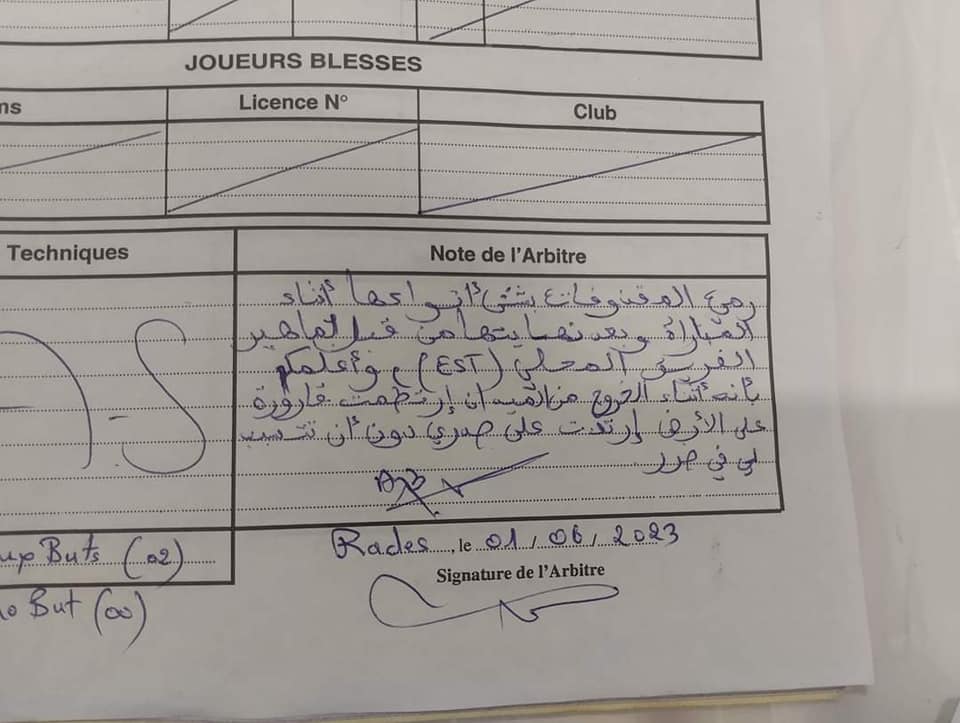 JOUEURS BLESSES
ns
Licence N°
Club
Techniques
Note de l'Arbitre
رمي المقذوفات بشتى أنواعها أثناء
المباراة وبعد نهايتها من قبل جماهير
الفريق المحلي (EST)، وأعلمكم
بأنه أثناء الخروج من الميدان إرتطمت قارورة
على الأرض إرتدت على صدري دون أن تتسبب
لي في ضرر
A-S
Rades, le 01/06/2023
Signature de l'Arbitre
ux Buts (02)
o But (00)